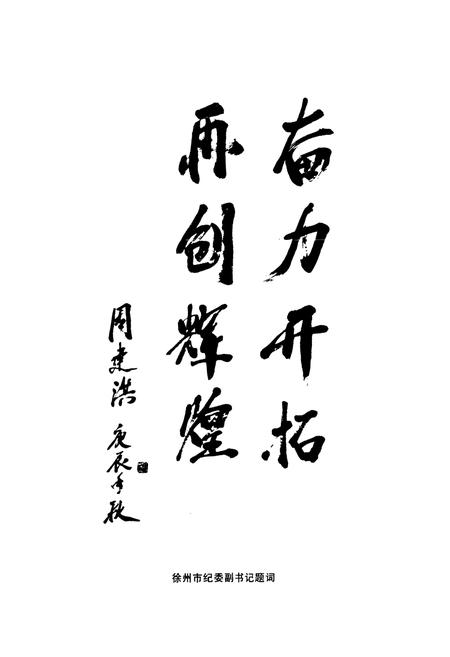 奋力开拓
再创辉煌
周建洪 庚辰年秋
徐州市纪委副书记题词